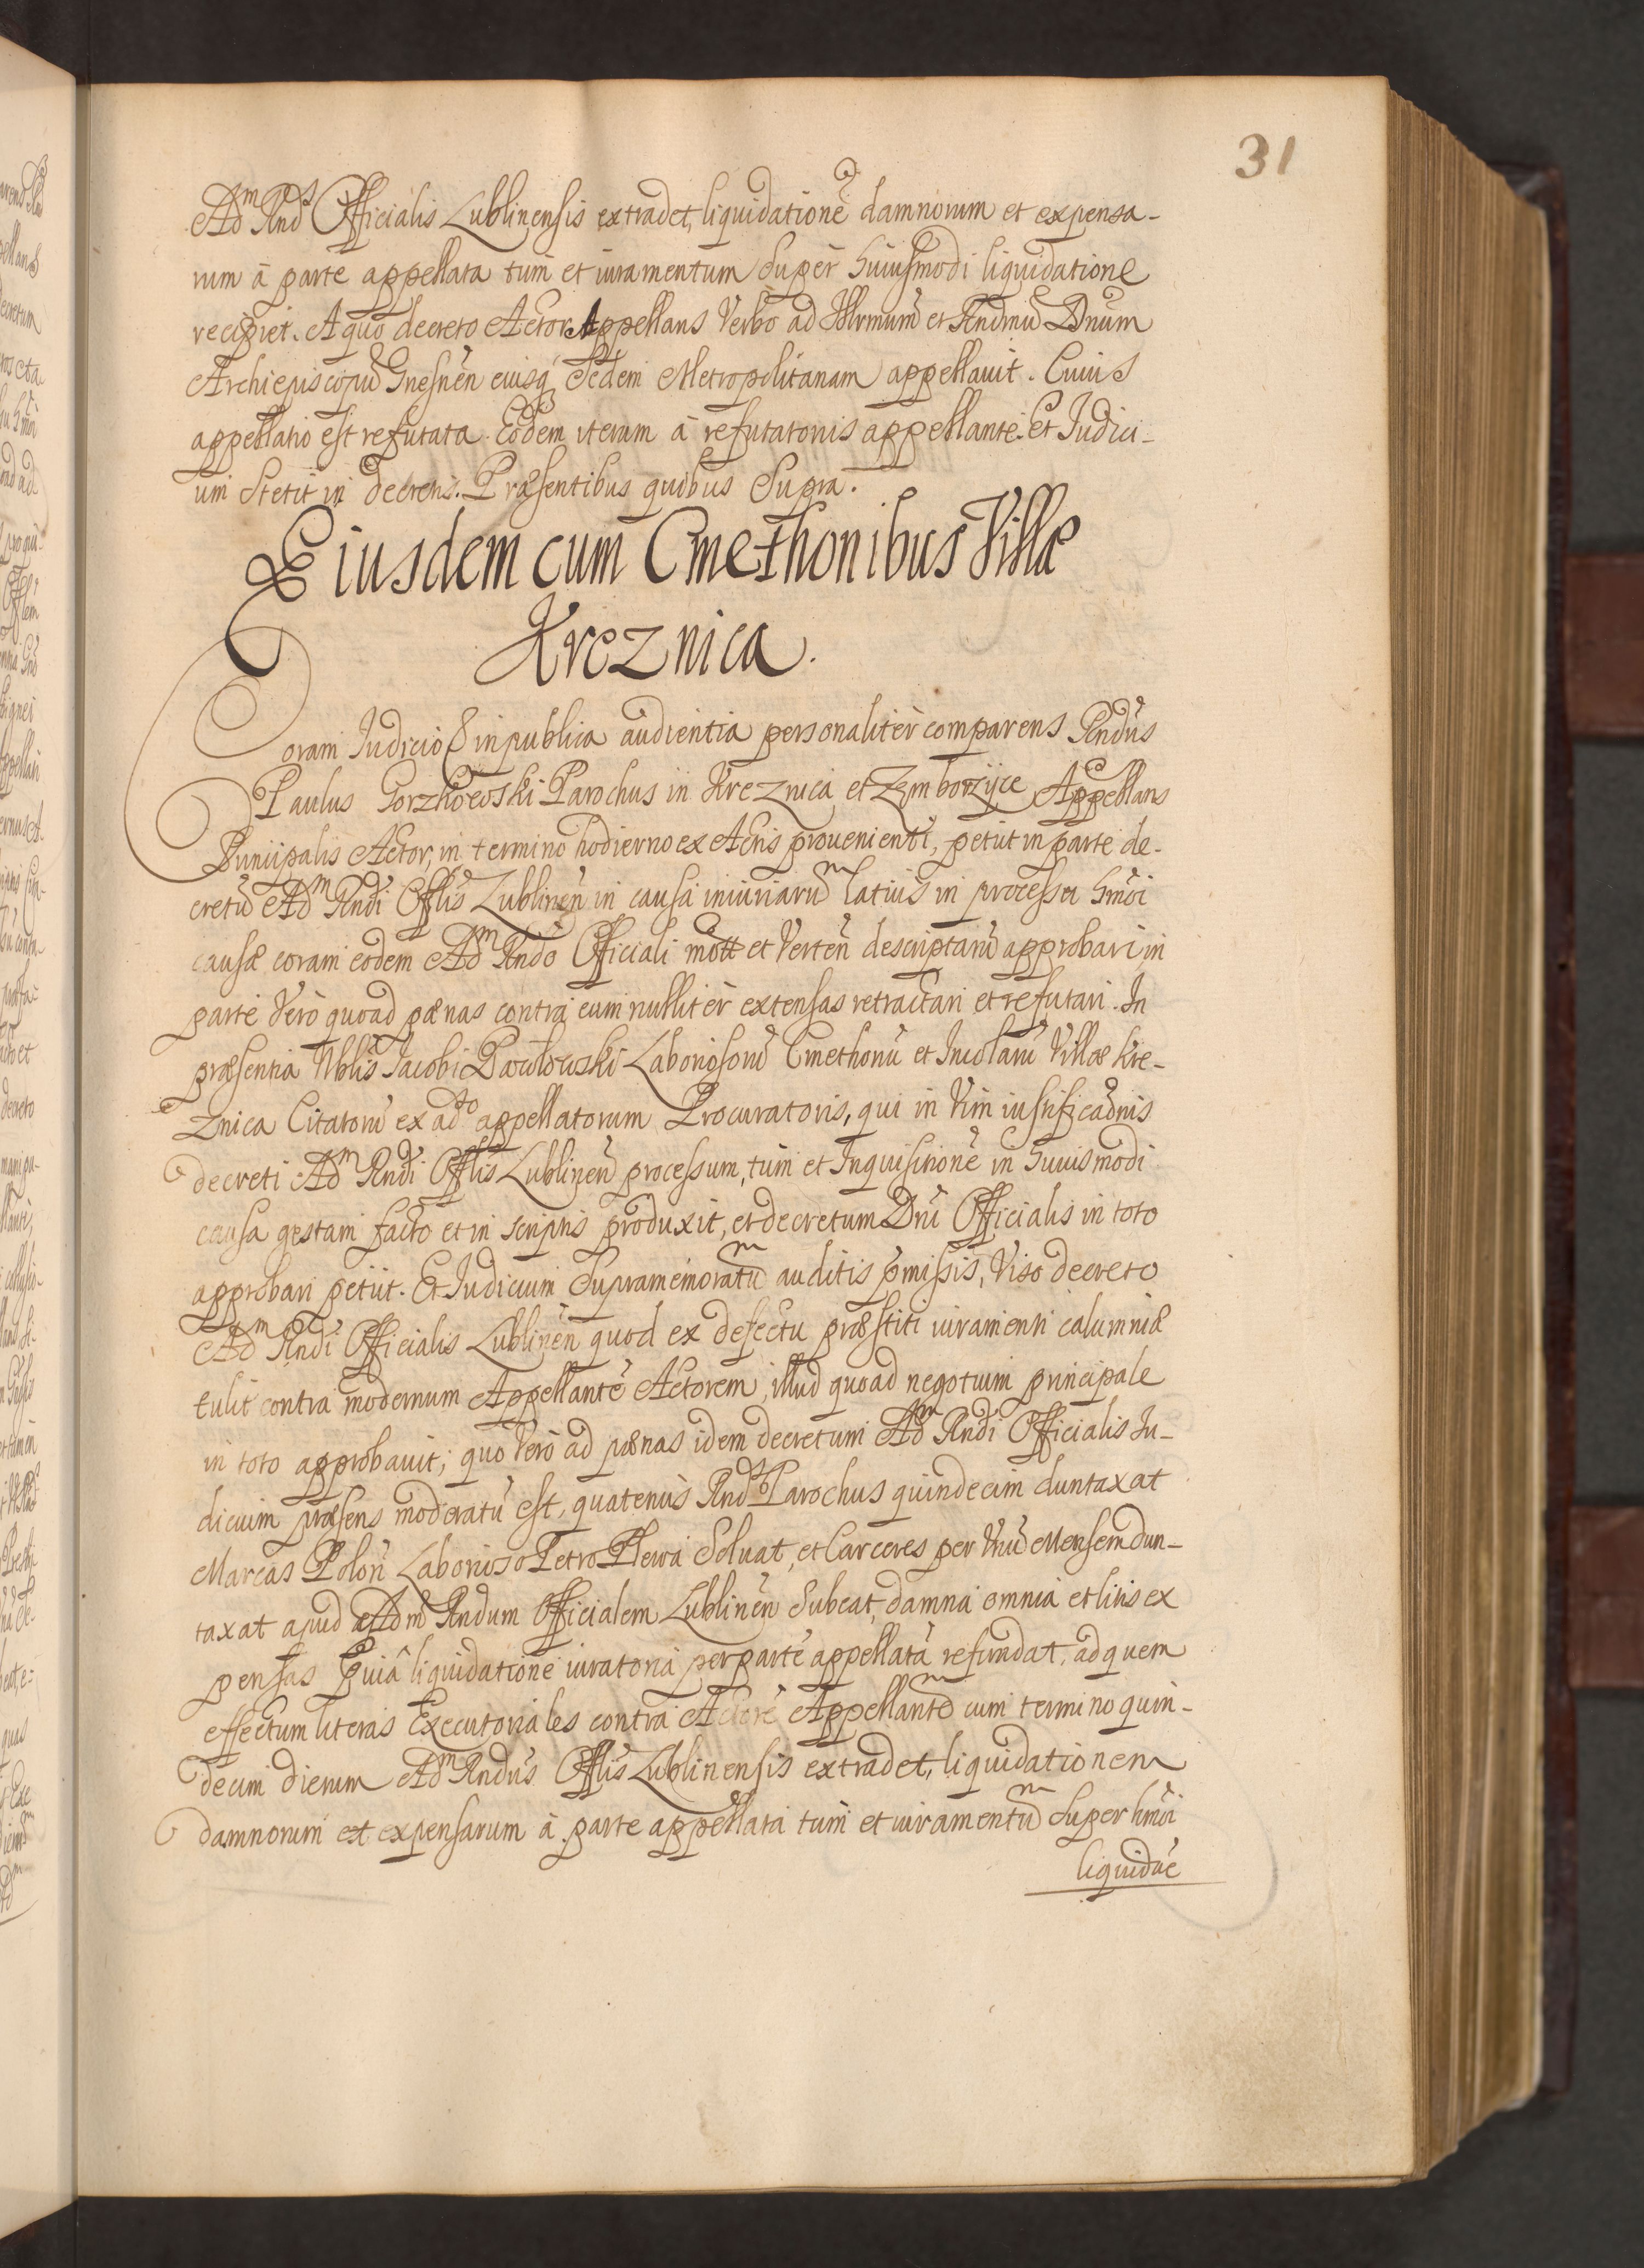 31
Adm Rnds Officialis Lublinensis extradet, liquidationē damnorum et expensa-
rum à parte appellata tum et iuramentum super huiusmodi liquidatione
recipiet. A quo decreto Actor Appellans verbo ad Illrmum et Rndmū Dnum
Archiepiscopū Gnesnēn eiusq Sedem Metropolitanam appellauit. Cuius
appellatio est refutata. Eodem iterum à refutatonis appellante. Et Iudici-
um stetit in decretis. Præsentibus quibus supra.
Eiusdem cum Cmethonibus Villæ
Kreznica.
Coram Iudicio & in publica audientia personalitèr comparens Rndus
Paulus Gorzkowski Parochus in Kreznica et Zemborzyce Appellans
Principalis Actor, in termino hodierno ex Actis prouenienti, petiit in parte de-
cretū Adm Rndi Offlis Lublinēn in causa iniuriarum latius in processu hmōi
causæ coram eodem Adm Rndo Officiali mott et verteñ descriptarū approbari in
parte verò quoad pœnas contra eum nullitèr extensas retractari et refutari. In
præsentia Nblis Jacobi Pawlowski Laboriosorū Cmethonū et Incolarū Villæ Kre-
znica Citatorū ex adto appellatorum Procuratoris, qui in vim iustificaōnis
decreti Adm Rndi Offlis Lublinēn processum, tum et Inquisitionē in huiusmodi
causa gestam facto et in scriptis produxit, et decretum Dni Officialis in toto
approbari petiit. Et Iudicium supramemoratum auditis pmissis, viso decreto
Adm Rndi Officialis Lublinēn quod ex defectu præstiti iuramenti calumniæ
tulit contra modernum Appellantē Actorem, illud quoad negotium principale
in toto approbauit; quo verò ad pœnas idem decretum Adm Rndi Officialis Iu-
dicium præsens moderatū est, quatenùs Rnds Parochus quindecim duntaxat
Marcas Polon Laborioso Petro Plewa soluat, et Carceres per vnū Mensem dun-
taxat apud Adm Rndum Officialem Lublinēn subeat, damna omnia et litis ex
pensas præuiâ liquidatione iuratoria per partē appellatā refundat, ad quem
effectum literas Executoriales contra Actorē Appellantem cum termino quin-
decim dierum Adm Rndus Offlis Lublinensis extradet, liquidationem
damnorum et expensarum à parte appellata tum et iuramentum super hmōi
liquidaē